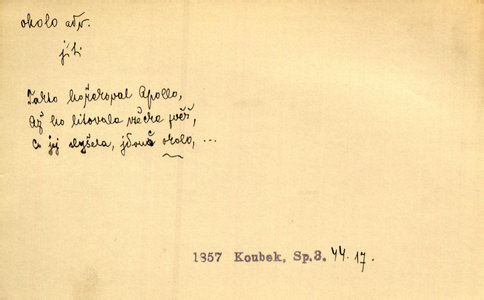 okolo adv.
jíti
Takto hořeroval Apollo,
Až ho litovala všecka zvěř,
Co jej slyšela, jdouc okolo, ...
1857 Koubek, Sp.3. 44.17.